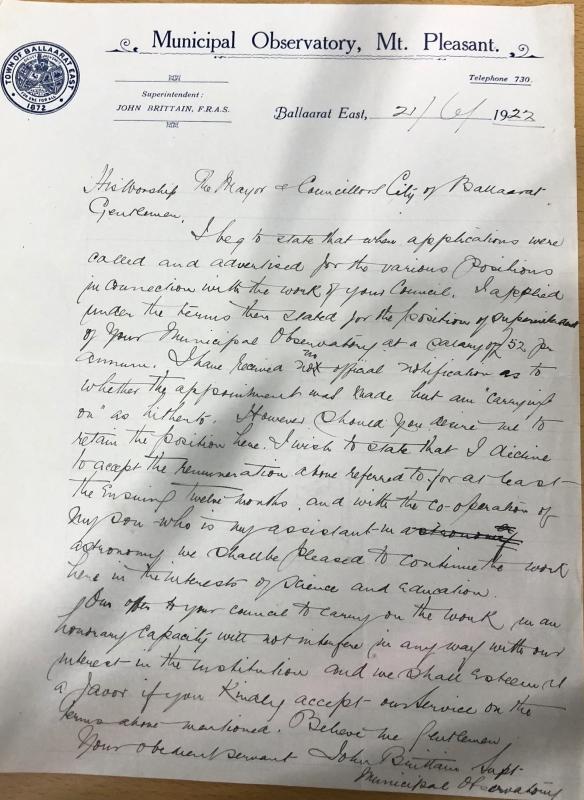 Municipal Observatory, Mt. Pleasant.
TOWN OF BALLAARAT EAST
1872
Telephone 730.
Superintendent:
JOHN BRITTAIN, F.R.A.S.
Ballaarat East, 21/6/ 1922
His Worship The Mayor & Councillors City of Ballaarat
Gentlemen,
I beg to state that when applications were
called and advertised for the various Positions
in connection with the work of your Council. I applied
under the terms then stated for the position of Superintendent
of your Municipal Observatory at a salary of 52 per
annum. I have received no official notification as to
whether the appointment was made but am "carrying
on" as hitherto. However should you desire me to
retain the position here. I wish to state that I decline
to accept the remuneration above referred to for at least
the Ensuing twelve months. and with the co-operation of
my son who is my assistant in astronomy
astronomy we shall be pleased to continue the work
here in the interests of science and Education.
Our offer to your council to carry on the work in an
honorary capacity will not interfere in any way with our
interest in the institution and we shall Esteem it
a favor if you Kindly accept our service on the
terms above mentioned. Believe me Gentlemen
Your obedient servant John Brittain Supt
Municipal Observatory